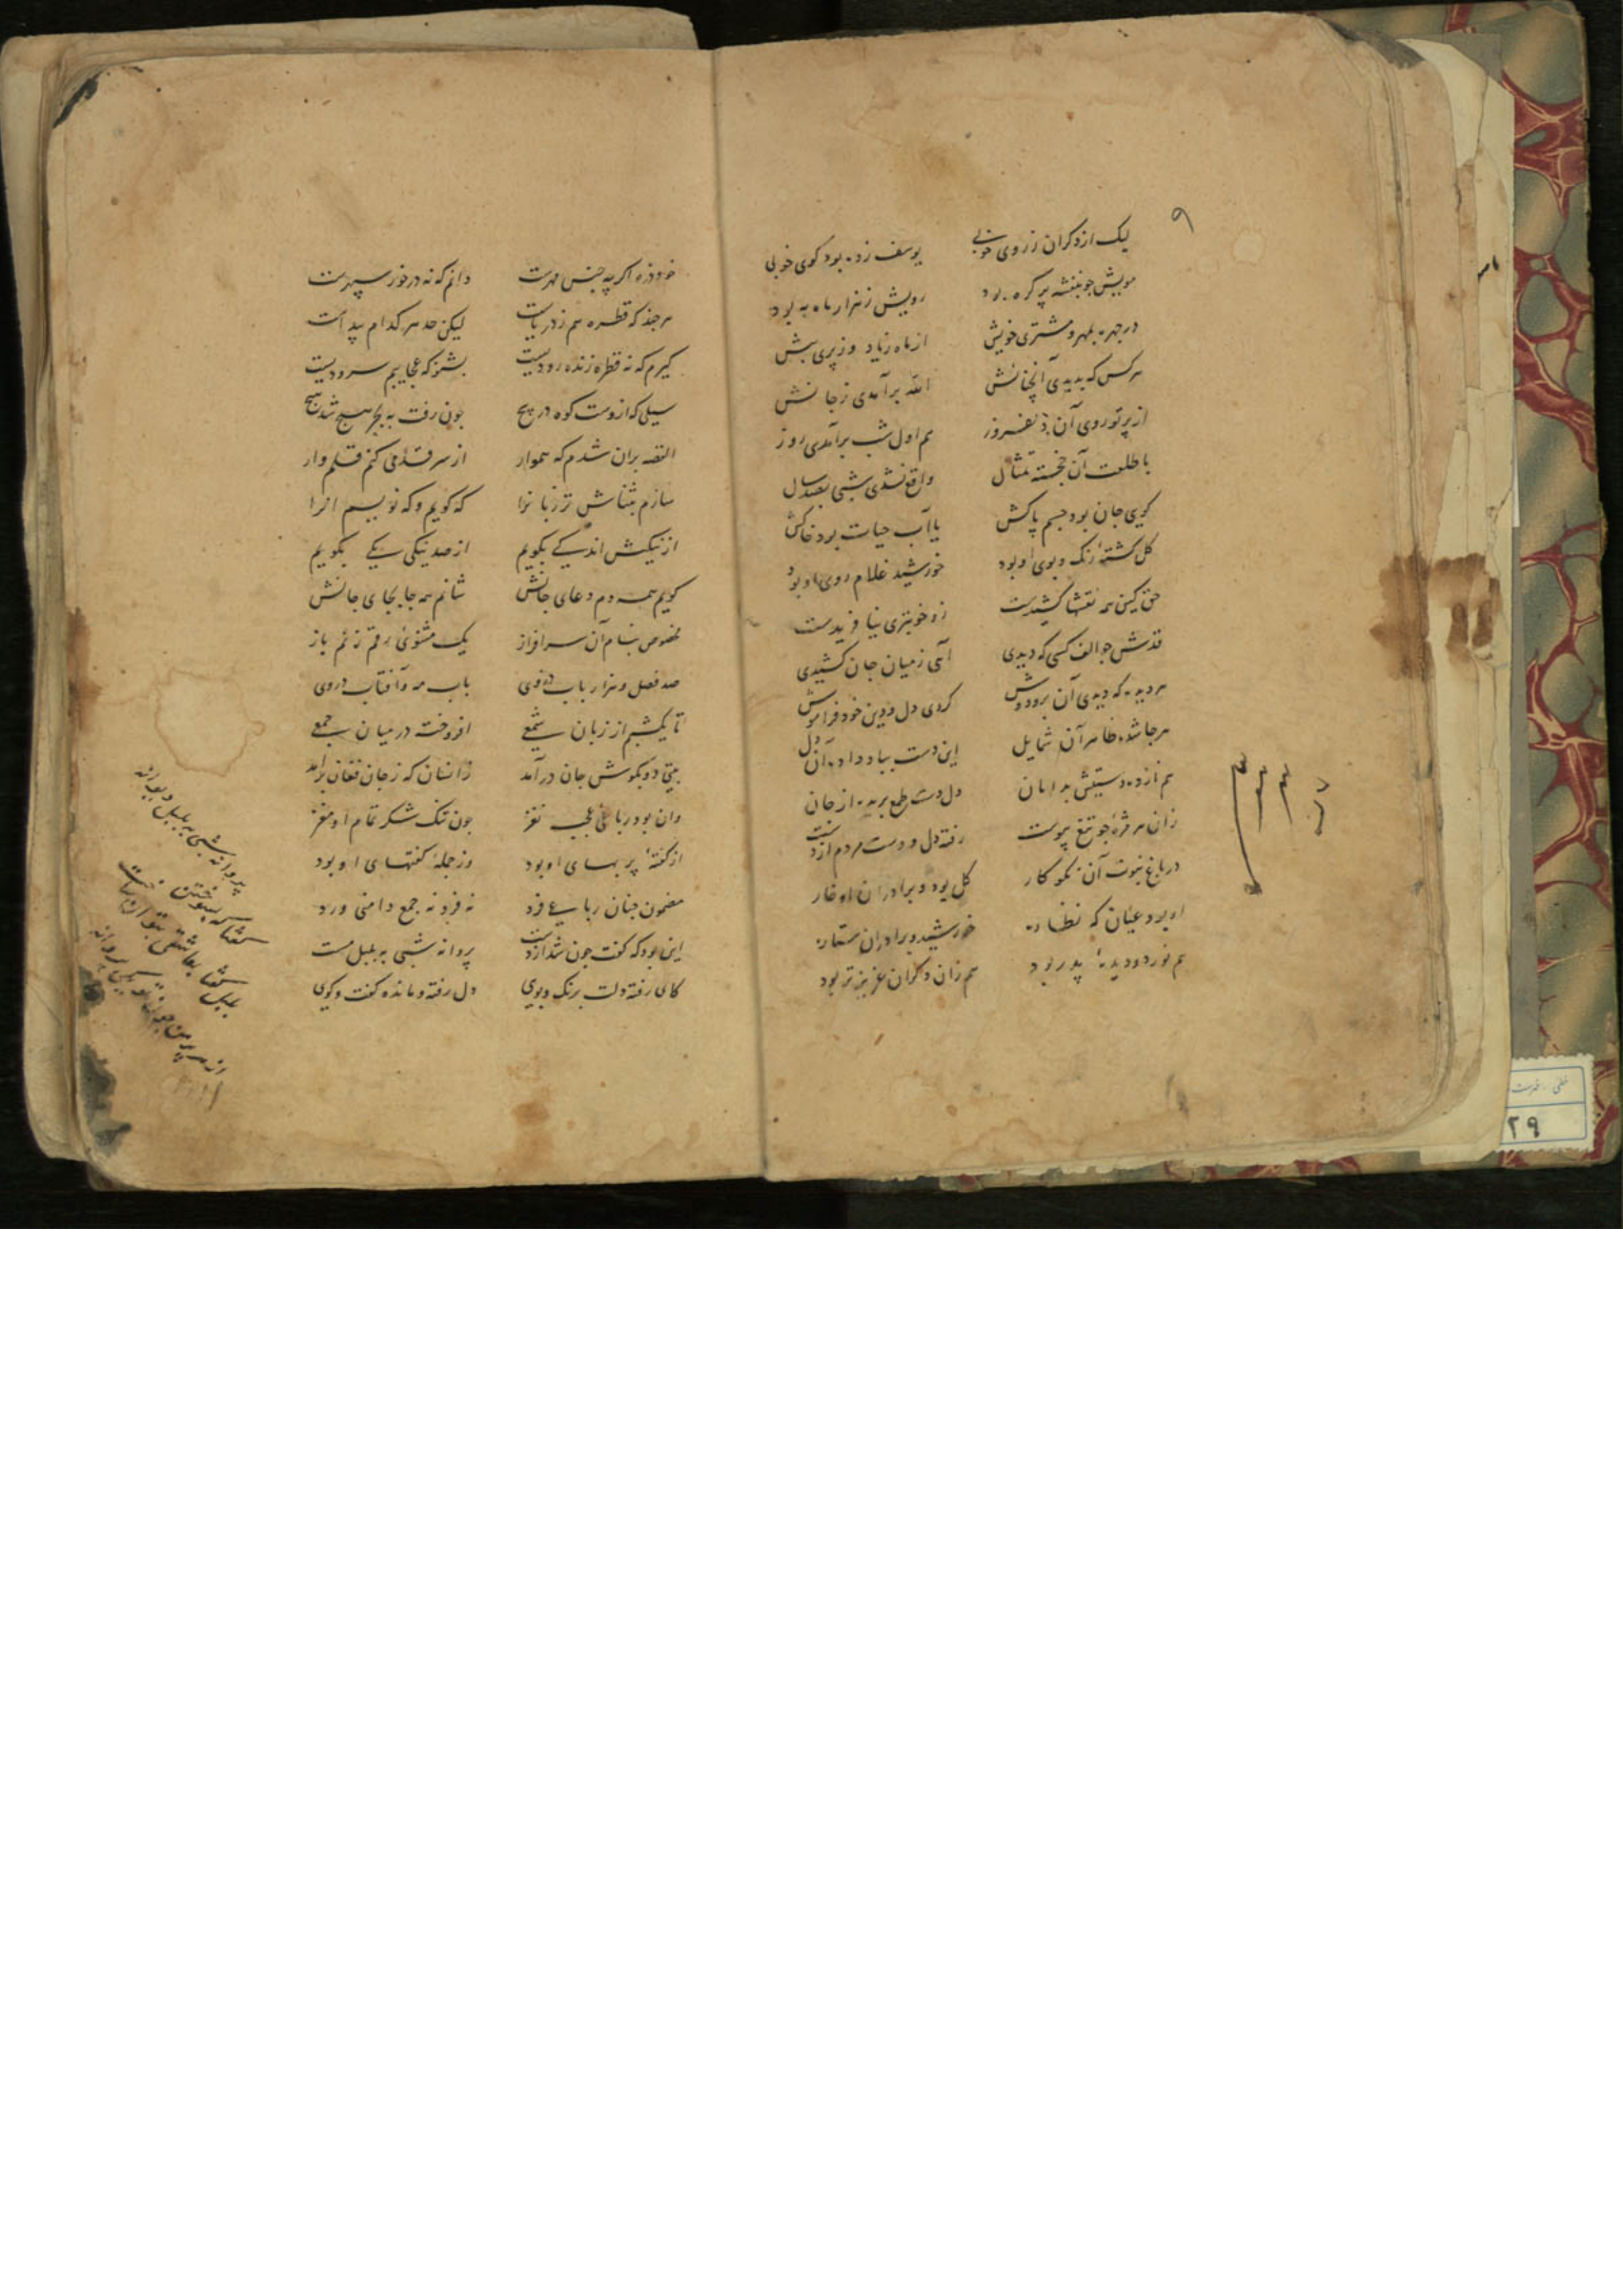 ۹
لیک از دکران ز روی خوبی یوسف زده بود کوی خوبی
مویش جو بنفشه پر کره بود رویش ز هزار ماه به بود
در چهره بمهر و مشتری خویش از ماه زیاد وز پری بیش
هر کس که بدیدی آنچنانش الله برآمدی ز جانش
از پرتو روی آن هم اول شب برآمدی روز
با طلعت آن خجسته تمثال واقع نشدی شبی بصد سال
کویی جان بود جسم پاکش یا آب حیات بود خاکش
کل کشتهٔ رنک و بوی او بود خورشید غلام روی او بود
حق کین همه نقشها کشیدست زو خوبتری نیافریدست
قدش جو الف کسی که دیدی آهی ز میان جان کشیدی
هر دیده که دیدی آن برودوش کردی دل و دین خود فراموش
هر جا شده ظاهر آن شمایل این دست بباد داده آن دل
هم نازده دستش بدامان دل دست طمع بریده از جان
زان هر مژهٔ جو تیغ پیوست رفته دل و دست مردم از دست
در باغ نبوت آن نکوکار کل بود و برادران او خار
او بود عیان که نظاره خورشید و برادران ستاره
هم نور دو دیدهٔ پدر بود هم زان دکران عزیزتر بود
خود ذره اکر چه جنس مهرست دانم که نه در خور سپهرست
هر جند که قطره هم ز دریاست لیکن حد هر کدام پیداست
کیرم که نه قطره زنده رودیست بشنو که عجایبم سرودیست
سیلی که ازوست کوه در پیچ جون رفت به بحر هیچ شد هیچ
القصه بران شدم که هموار از سر قدمی کنم قلم وار
سازم بثناش تر زبانرا که کویم و که نویسم انرا
از نیکیش اندکی بکویم از صد نیکی یکی بکویم
کویم همه دم دعای جانش شانم همه جا بجای جانش
مخصوص بنام آن سرافراز یک مثنوئ رقم زنم باز
صد فصل و هزار باب در وی باب مه و آفتاب در وی
تا یکشبم از زبان شمعی افروخت در میان جمعی
بیتی دو بکوش جان درآمد زانسان که ز جان فغان برامد
وان بود رباعی عجب نغز جون تنک شکر تمام او مغز
از کفتهٔ پر بهای او بود وز جملهٔ کفتهای او بود
مضمون جنان رباعی فرد نه فرد نه جمع دامنی ورد
این بود که کفت جون شد از دست پروانه شبی به بلبل مست
کای رفته دلت برنک و بوی دل رفته و مانده کفت و کوی
پروانه شبی به بلبل دیوانه
کفتا که بسوختن
بلبل کفتا بعاشقی